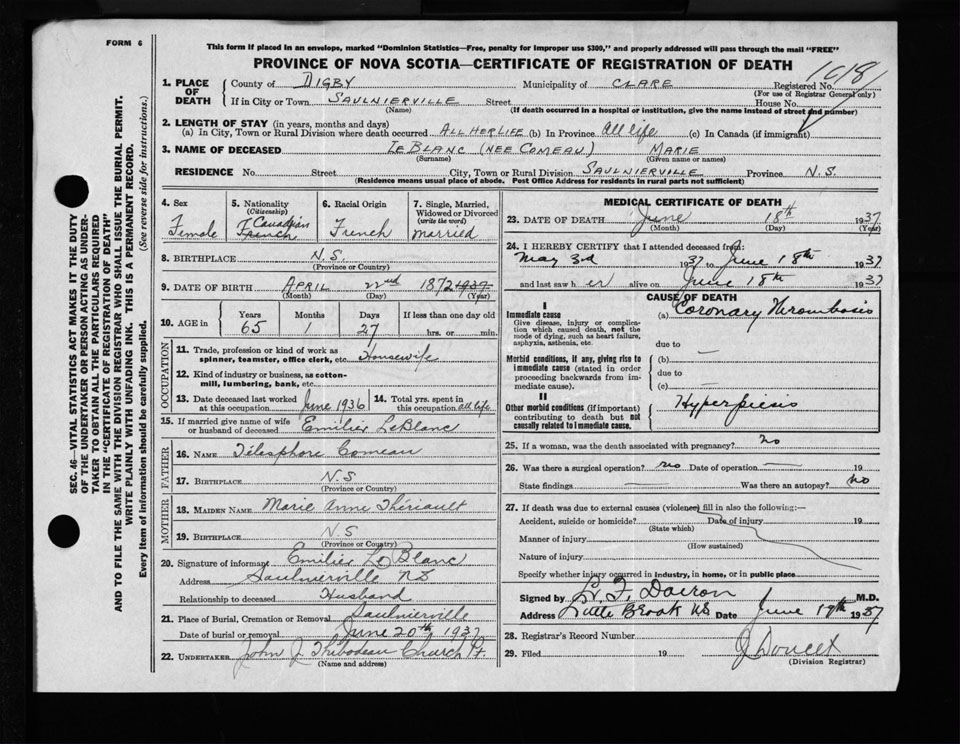 FORM 6
This form if placed in an envelope, marked "Dominion Statistics—Free, penalty for improper use $300," and properly addressed will pass through the mail "FREE"
PROVINCE OF NOVA SCOTIA—CERTIFICATE OF REGISTRATION OF DEATH
1018
1. PLACE OF DEATH
County of DIGBY Municipality of CLARE Registered No.
(For use of Registrar General only)
If in City or Town SAULNIERVILLE Street House No.
(Name) (If death occurred in a hospital or institution, give the name instead of street and number)
2. LENGTH OF STAY (in years, months and days)
(a) In City, Town or Rural Division where death occurred ALL HER LIFE (b) In Province all life (c) In Canada (if immigrant)
3. NAME OF DECEASED LE BLANC (NEE COMEAU) MARIE
(Surname) (Given name or names)
RESIDENCE No. Street City, Town or Rural Division SAULNIERVILLE Province N.S.
(Residence means usual place of abode. Post Office Address for residents in rural parts not sufficient)
4. Sex
Female
5. Nationality
(Citizenship)
Canadian
French
6. Racial Origin
French
7. Single, Married, Widowed or Divorced
(write the word)
married
8. BIRTHPLACE N.S.
(Province or Country)
9. DATE OF BIRTH APRIL 22nd 1872 1937
(Month) (Day) (Year)
10. AGE in
Years Months Days If less than one day old
65 1 27 hrs. or min.
OCCUPATION
11. Trade, profession or kind of work as spinner, teamster, office clerk, etc. Housewife
12. Kind of industry or business, as cotton-mill, lumbering, bank, etc.
13. Date deceased last worked at this occupation June 1936
14. Total yrs. spent in this occupation all life
15. If married give name of wife or husband of deceased Emilier LeBlanc
FATHER
16. NAME Télesphore Comeau
17. BIRTHPLACE N.S
(Province or Country)
MOTHER
18. MAIDEN NAME Marie Anne Thériault
19. BIRTHPLACE N.S
(Province or Country)
20. Signature of informant Emilier LeBlanc
Address Saulnierville NS
Relationship to deceased Husband
21. Place of Burial, Cremation or Removal Saulnierville
Date of burial or removal June 20th 1937
22. UNDERTAKER John J Thibodeau Church Pt
(Name and address)
MEDICAL CERTIFICATE OF DEATH
23. DATE OF DEATH June 18th 1937
(Month) (Day) (Year)
24. I HEREBY CERTIFY that I attended deceased from:
May 3rd 1937 to June 18th 1937
and last saw h er alive on June 18th 1937
CAUSE OF DEATH
I
Immediate cause
Give disease, injury or complication which caused death, not the mode of dying, such as heart failure, asphyxia, asthenia, etc.
(a) Coronary Thrombosis
due to
Morbid conditions, if any, giving rise to immediate cause (stated in order proceeding backwards from immediate cause).
(b) —
due to
(c) —
II
Other morbid conditions (if important) contributing to death but not causally related to immediate cause.
Hyperpiesis
25. If a woman, was the death associated with pregnancy? no
26. Was there a surgical operation? no Date of operation — 19
State findings — Was there an autopsy? no
27. If death was due to external causes (violence) fill in also the following:—
Accident, suicide or homicide? Date of injury 19
(State which)
Manner of injury
(How sustained)
Nature of injury
Specify whether injury occurred in industry, in home, or in public place
Signed by M.D.
Address Little Brook NS Date June 19th 1937
28. Registrar's Record Number
29. Filed 19 J Doucet
(Division Registrar)
SEC. 46—VITAL STATISTICS ACT MAKES IT THE DUTY
OF THE UNDERTAKER OR PERSON ACTING AS UNDERTAKER
TO OBTAIN ALL THE PARTICULARS REQUIRED
IN THE "CERTIFICATE OF REGISTRATION OF DEATH"
AND TO FILE THE SAME WITH THE DIVISION REGISTRAR WHO SHALL ISSUE THE BURIAL PERMIT.
WRITE PLAINLY WITH UNFADING INK. THIS IS A PERMANENT RECORD.
Every item of information should be carefully supplied. (See reverse side for instructions.)